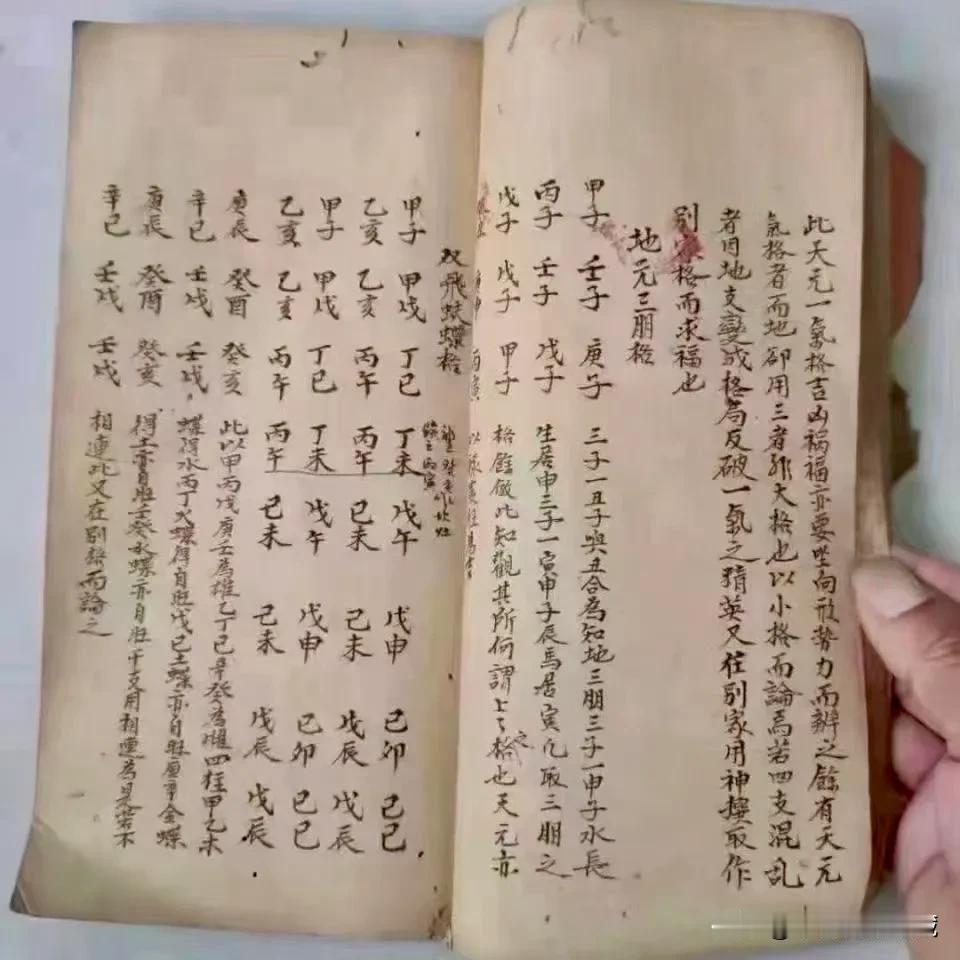 此天元一氣格吉凶禍福亦要坐向形勢力而辨之餘有天元
氣格者而地卻用三者非大格也以小格而論焉若四支混乱
者因地支變成格局反破一氣之精英又住別家用神接取作
別家格而求福也
地元三朋格
甲子 壬子 庚子 三子一丑子與丑合為知地三朋三子一申子水長
丙子 壬子 戊子 生居申三子一寅申子辰馬居寅凡取三朋之
戊子 戊子 甲子 格餘倣此知觀其所何謂上々格也天元亦
丙寅 以
双飛蚨蝶格
甲子 甲戌 丁巳 丁未 戊午 戊申 己卯 己巳
乙亥 乙亥 丙午 丙午 己未 己未 戊辰 戊辰
甲子 甲戌 丁巳 丁未 戊午 戊申 己卯 己巳
乙亥 乙亥 丙午 丙午 己未 己未 戊辰 戊辰
庚辰 癸酉 癸亥 此以甲丙戊庚壬為雄乙丁己辛癸為雌四柱甲乙木
辛巳 壬戌 壬戌 蝶得水丙丁火蝶得自旺戊己土蝶亦自旺庚辛金蝶
庚辰 癸酉 癸亥 得土育自旺壬癸水蝶亦自旺干支用相連為是若不
辛巳 壬戌 壬戌 相連此又在別格而論之